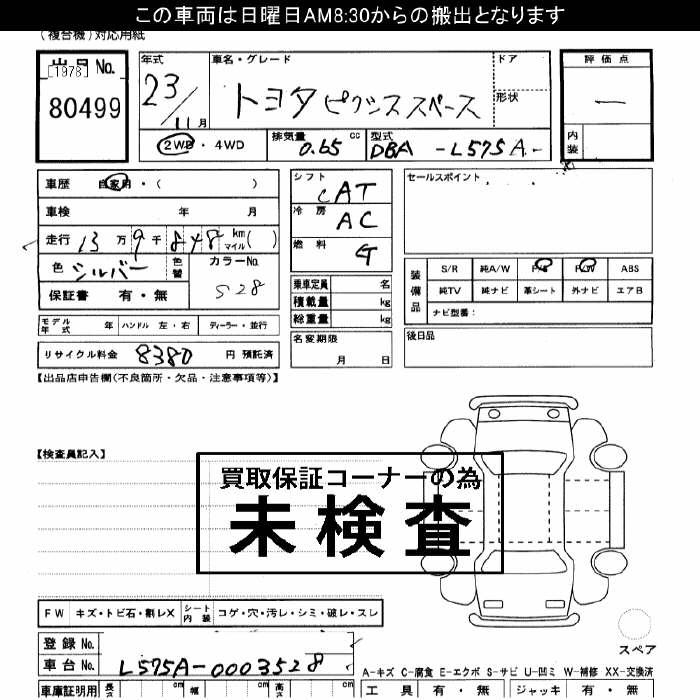 この車両は日曜日AM8:30からの搬出となります
(複合機)対応用紙
出品No.
[1978]
80499
年式
23/11月
車名・グレード
トヨタ ピクシススペース
ドア
形状
評価点
ー
内装
2WD・4WD
排気量 0.65 cc
型式 DBA-L575A-
車歴 自家用・( )
車検 年 月
走行 13万9千848 km マイル( )
色 シルバー 色替
カラーNo. S28
保証書 有・無
シフト CAT
冷房 AC
燃料 G
乗車定員 名
積載量 kg
総重量 kg
名変期限
月 日
セールスポイント
装備品
S/R 純A/W P/S P/W ABS
純TV 純ナビ 革シート 外ナビ エアB
ナビ型番:
後日品
モデル年式 年 ハンドル 左・右 ディーラー・並行
リサイクル料金 8380 円 預託済
【出品店申告欄(不良箇所・欠品・注意事項等)】
【検査員記入】
買取保証コーナーの為
未検査
FW キズ・トビ石・割レX シート内装 コゲ・穴・汚レ・シミ・破レ・スレ
スペア
登録No.
車台No. L575A-0003528
A-キズ C-腐食 E-エクボ S-サビ U-凹ミ W-補修 XX-交換済
車庫証明用 長さ cm 幅 cm 高さ cm
工具 有・無 ジャッキ 有・無